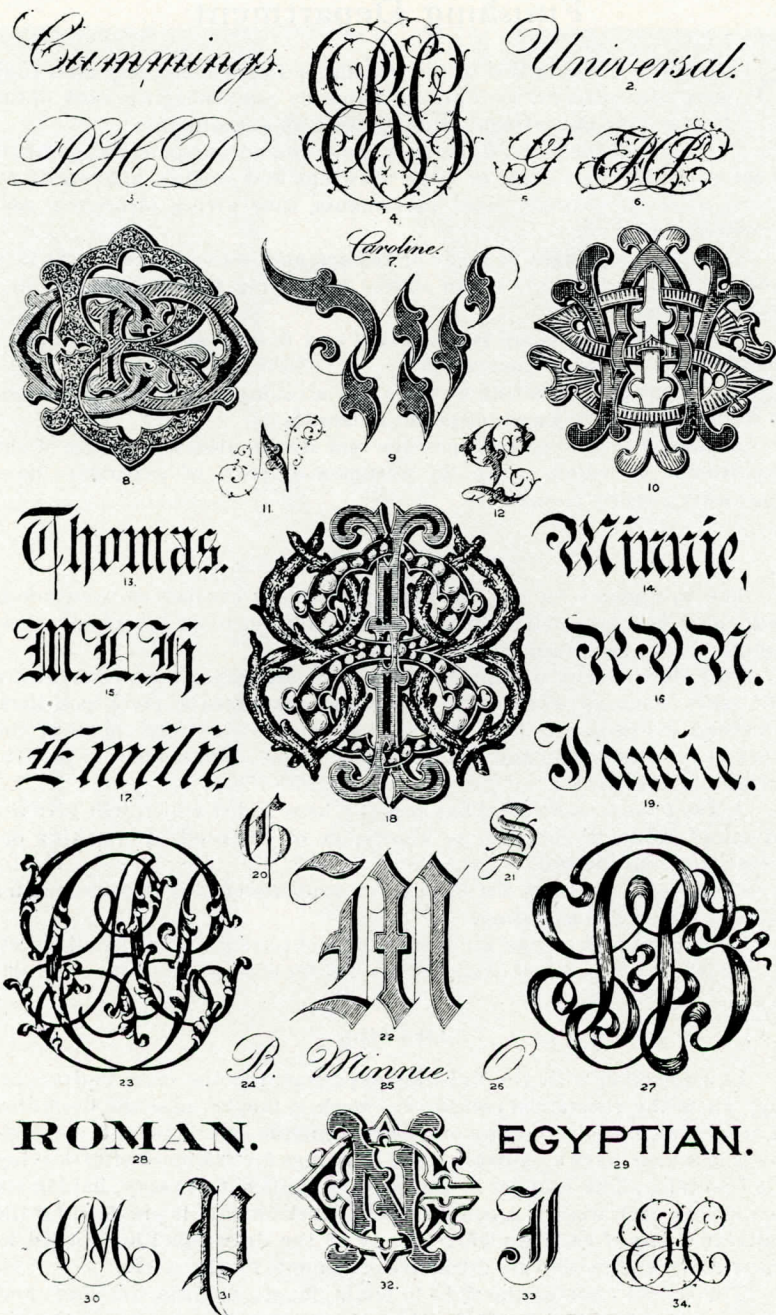 Cummings.
1.
Universal.
2.
P.H.D
3.
4.
G
5.
6.
Caroline.
7.
8.
W
9.
10
N
11.
12
Thomas.
13.
Minnie,
14.
M.L.H.
15
R.V.N.
16
Emilie
17.
18
Jamie.
19.
G
20
S
21
M
22
23
B.
24
Minnie.
25
O
26
27
ROMAN.
28
EGYPTIAN.
29
30
P
31
32.
33
34.